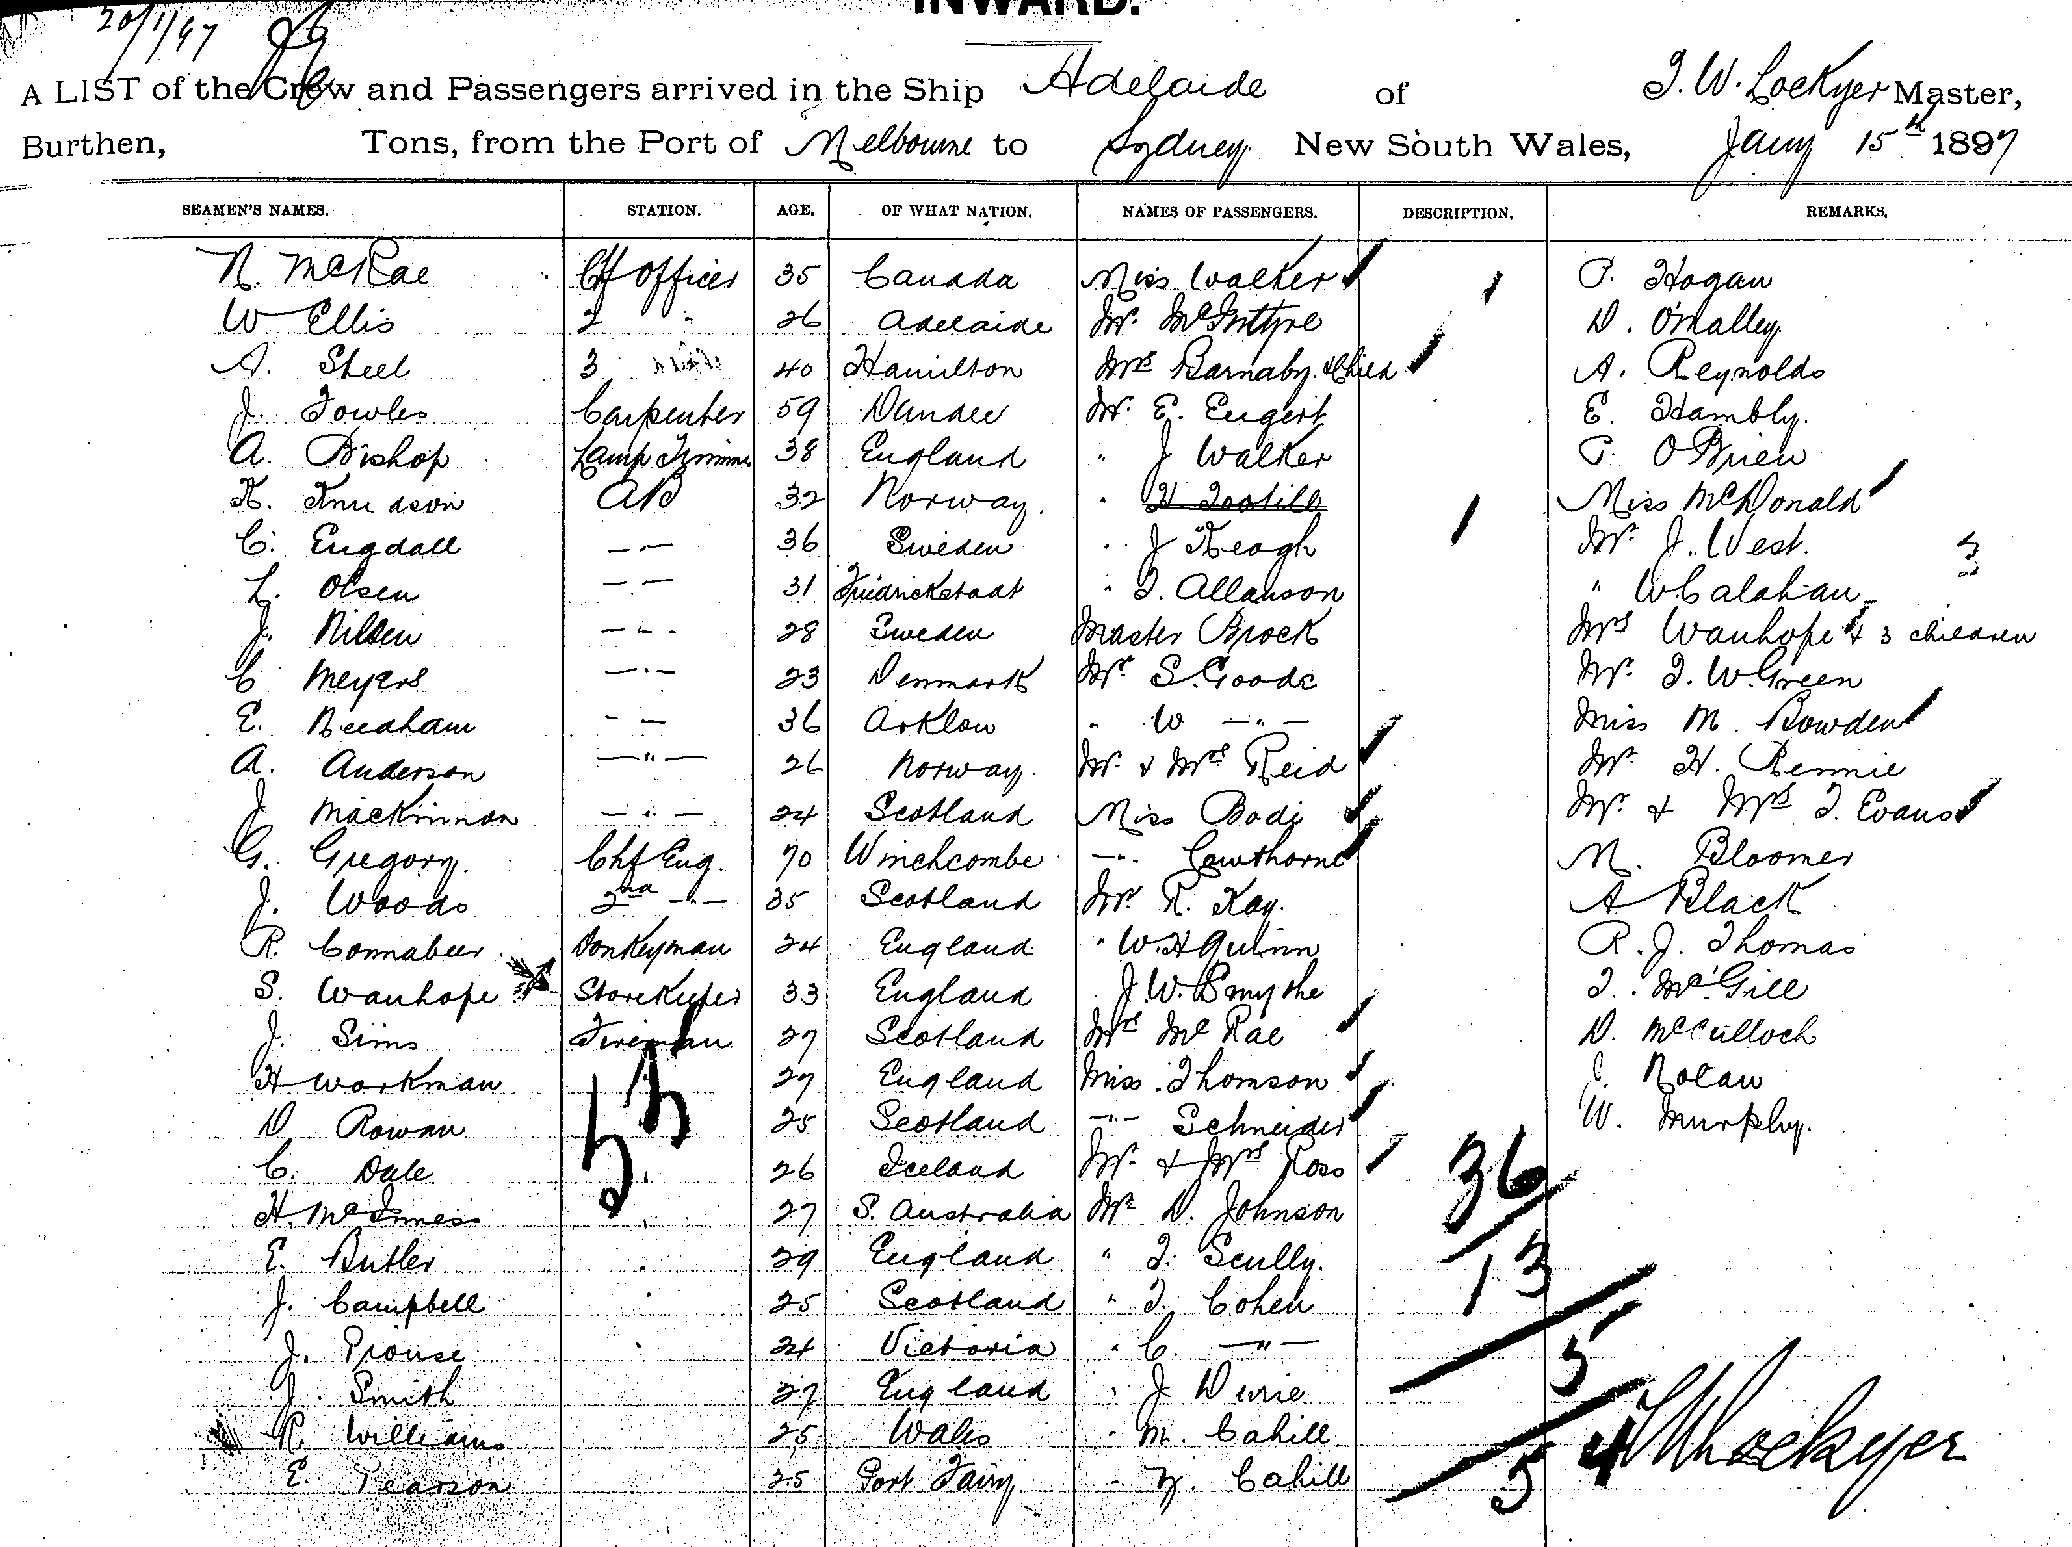 20/1/97
INWARD.
A LIST of the Crew and Passengers arrived in the Ship Adelaide of T. W. Lockyer Master,
Burthen, Tons, from the Port of Melbourne to Sydney New South Wales, Jany 15th 1897
SEAMEN'S NAMES. STATION. AGE. OF WHAT NATION. NAMES OF PASSENGERS. DESCRIPTION. REMARKS.
N. McRae Chf Officer 35 Canada Miss Walker P. Hogan
W Ellis 2 " 26 Adelaide Mr. McIntyre D. O'Malley
A. Steel 3 40 Hamilton Mrs Barnaby & Child A. Reynolds
J. Fowles Carpenter 59 Dundee Mr. E. Engert E. Hambly.
A. Bishop Lamp Trimmer 38 England " J Walker P. O'Brien
K. Knudson AB 32 Norway. " H Tootill Miss McDonald
C. Engdall — " — 36 Sweden " J Keogh Mr. J. West. 3
L. Olsen — " — 31 Fredrickstadt " T. Allanson " W Calahan
J. Nilsen — " — 28 Sweden Master Brock Mrs Wanhope & 3 children
C Meyers — " — 23 Denmark Mr. S. Goode Mr. T. W. Green
E. Needham — " — 36 Arklow " W — " — Miss M. Bowden
A. Anderson — " — 26 Norway. Mr & Mrs Reid Mr. H. Rennie
J MacKinnon — " — 24 Scotland Miss Bodi Mr. & Mrs T. Evans
G. Gregory. Chf Eng. 70 Winchcombe — " Cawthorne M. Bloomer
J. Woods 2nd — " — 35 Scotland Mr. R. Kay. A Black
R. Connabeer Donkeyman 24 England " W. H Quinn R. J. Thomas
S. Wanhope Storekeeper 33 England J. W. Smythe T. McGill
J. Sims Fireman 27 Scotland Mrs McRae D. McCulloch
H Workman " 27 England Miss Thomson J. Nolan
D Rowan 25 Scotland — " — Schneider W. Murphy.
53
C. Dale " 26 Iceland Mr. & Mrs Ross 36
H. McInness " 27 S. Australia Mr D. Johnson
E. Butler " 29 England " T. Scully. 13
J. Campbell " 25 Scotland " T. Cohen
J. Prouse " 24 Victoria " C — " — 5
J. Smith 27 England " J Durie
R. Williams 25 Wales " M. Cahill 54 T W Lockyer
E Pearson 25 Port Fairy " Cahill